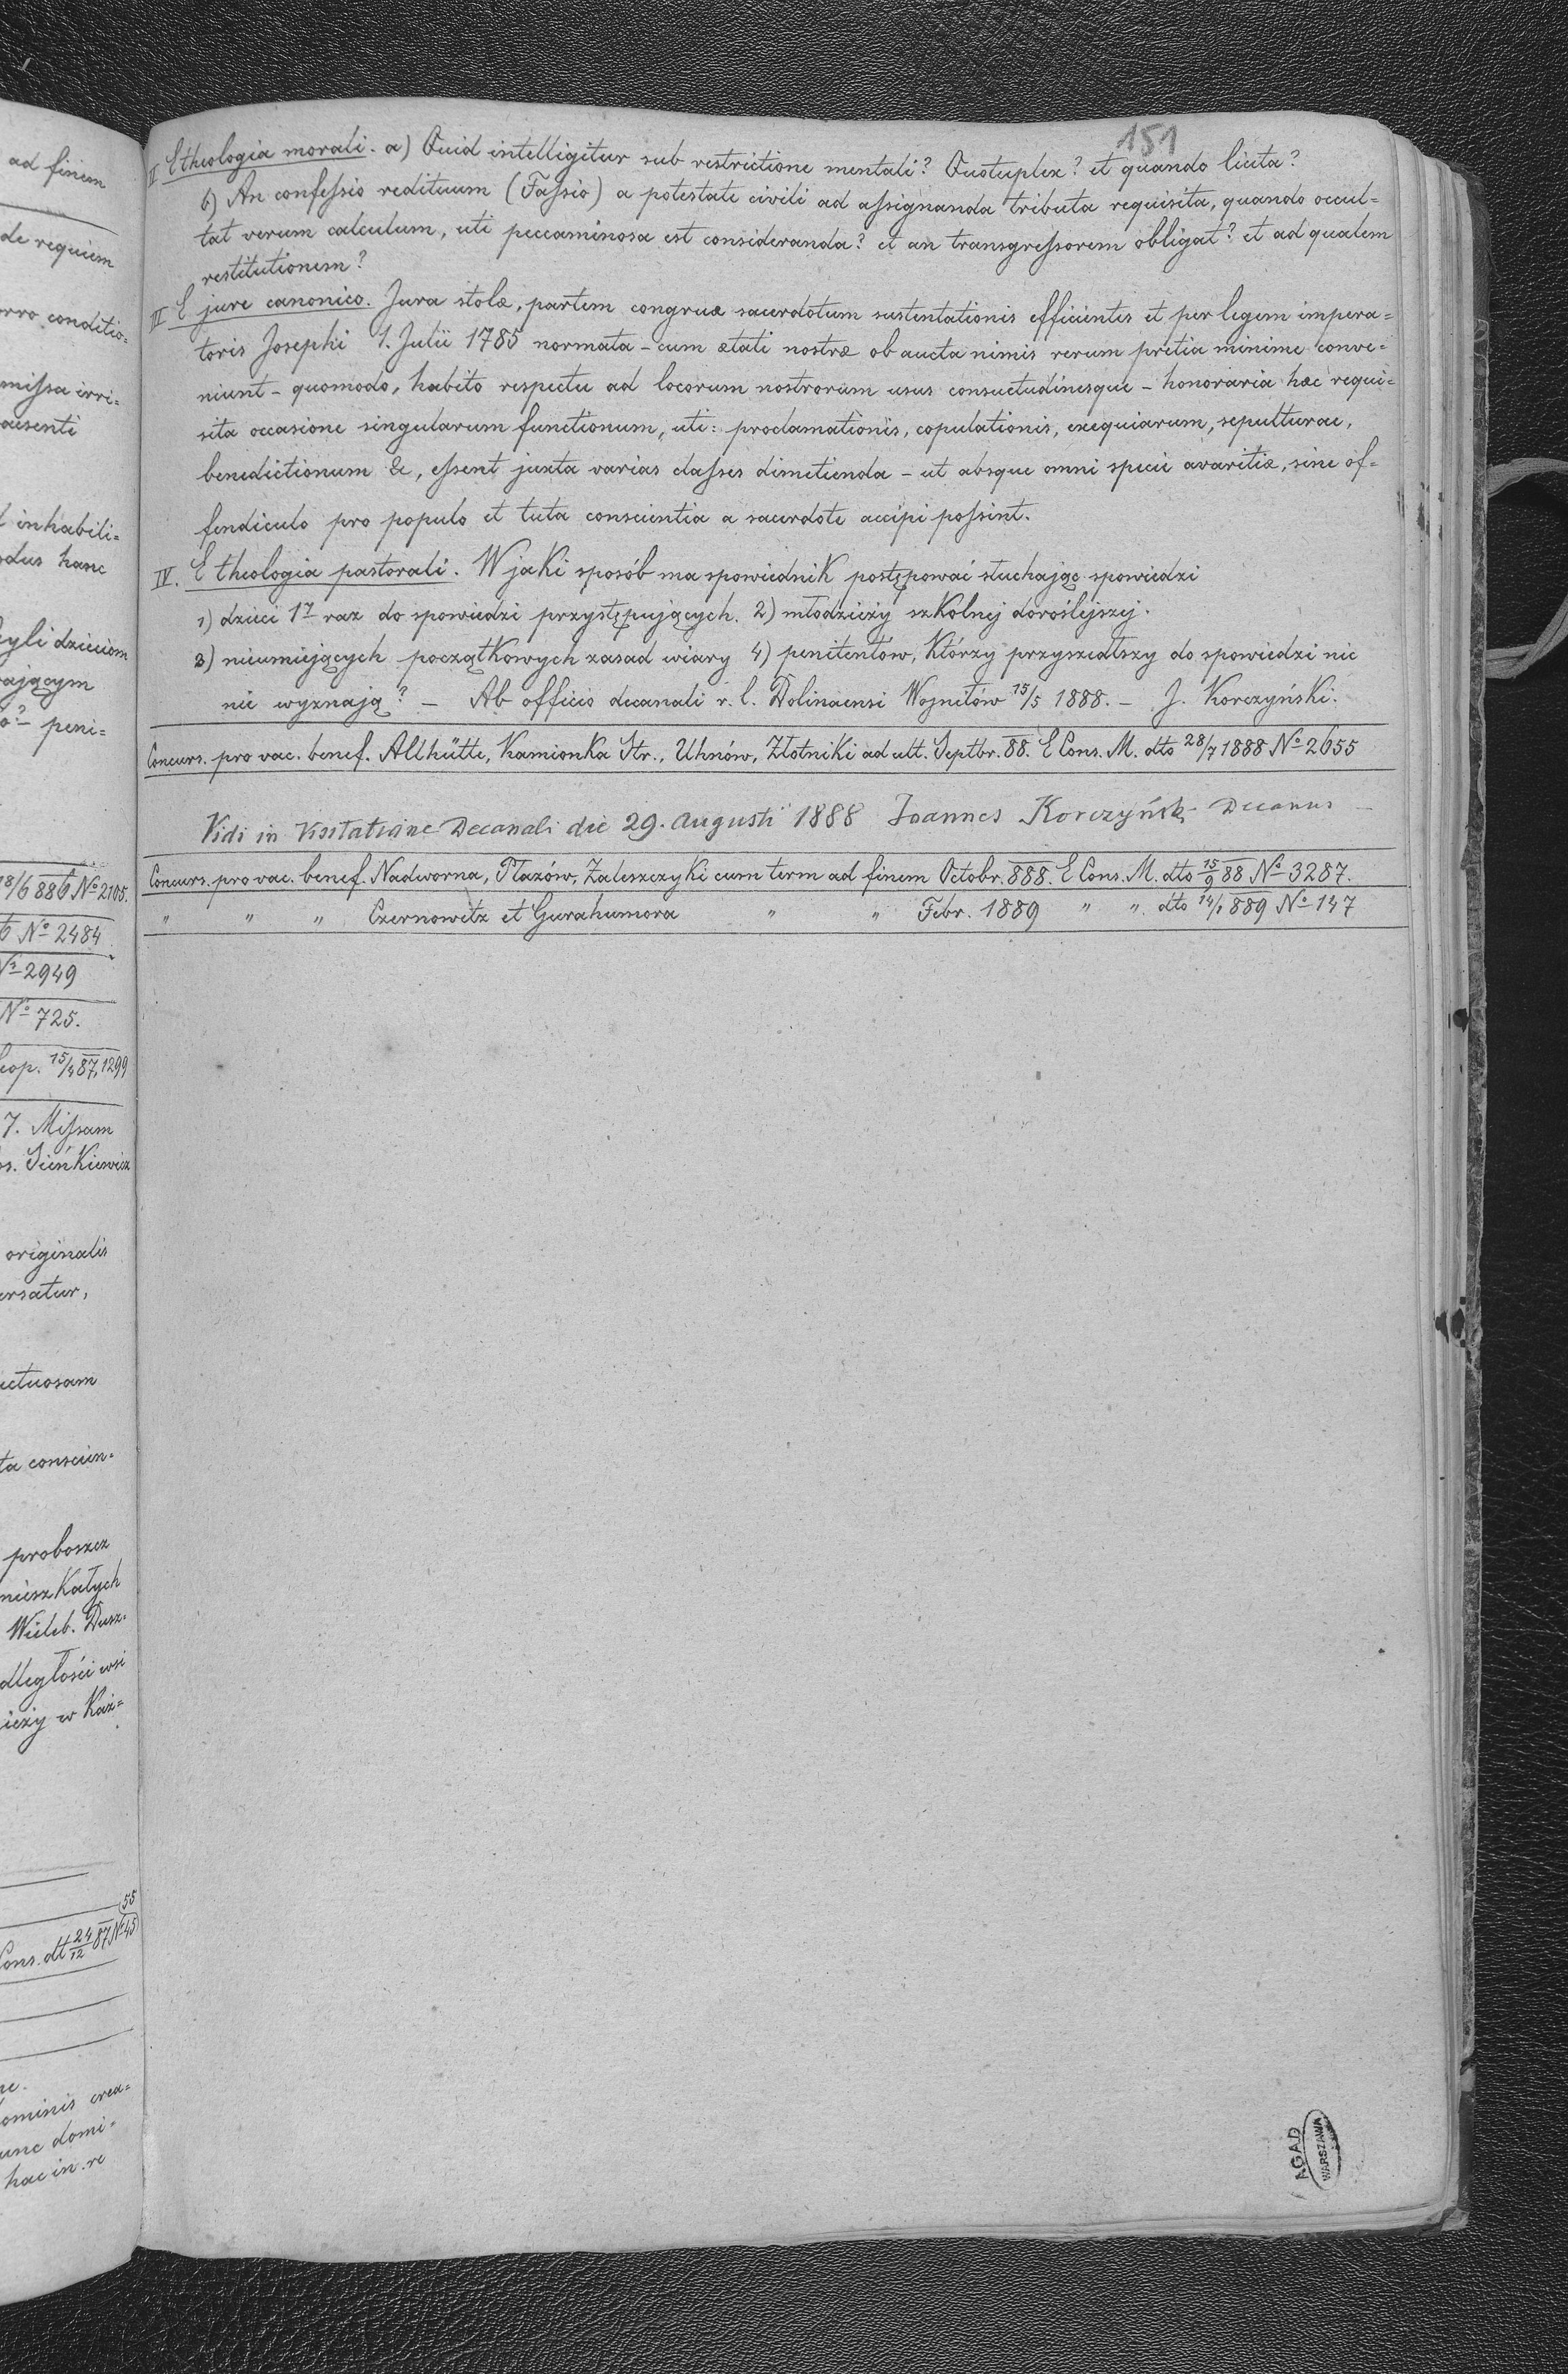 151
II E theologia morali. a) Quid intelligitur sub restrictione mentali? Quotuplex? et quando licita?
b) An confessio redituum (Fassio) a potestate civili ad assignanda tributa requisita, quando occul=
tat verum calculum, uti peccaminosa est consideranda? et an transgressorem obligat? et ad qualem
restitutionem?
III E jure canonico. Jura stolæ, partem congruæ sacerdotum sustentationis efficientes et per legem impera=
toris Josephi 1. Julii 1785 normata – cum ætati nostræ ob aucta nimis rerum pretia minime conve=
niunt – quomodo, habito respectu ad locorum nostrorum usus consuetudinesque – honoraria hæc requi=
sita occasione singularum functionum, uti: proclamationis, copulationis, exequiarum, sepulturae,
benedictionum &c, essent juxta varias classes dimetienda – ut absque omni specie avaritiæ, sine of=
fendiculo pro populo et tuta conscientia a sacerdote accipi possint.
IV. E theologia pastorali. W jaki sposób ma spowiednik postępować słuchając spowiedzi
1) dzieci 1ͫ raz do spowiedzi przystępujących. 2) młodzieży szkolnej doroślejszej.
3) nieumiejących początkowych zasad wiary 4) penitentów, którzy przyszedłszy do spowiedzi nic
nie wyznają? – Ab officio decanali r. l. Dolinaensi Wojniłów 15/5 1888. – J. Korczyński.
Concurs. pro vac. benef. Althütte, Kamionka Str., Uhnów, Złotniki ad ult. Septbr. 88. E Cons. M. dto 28/7 1888 No 2655
Vidi in Visitatione Decanali die 29. Augusti 1888 Joannes Korczyński Decanus –
Concurs. pro vac. benef. Nadworna, Płazów, Zaleszczyki cum term ad finem Octobr. 888. E Cons. M. dto 15/9 88 No 3287.
" " " Czernowitz et Gurahumora " " Febr. 1889 " " dto 14/1 889 No 147
ad finem
de requiem
orro conditio=
missa irri=
aesenti
inhabili=
odus hanc
czyli dzieciom
ającym
peni=
18/6 886 No 2105.
6 No 2484
No 2949
No 725.
cop. 15/4 87, 1299
7. Missam
os. Sieńkiewicz
originalis
ersatur,
uctuosam
ta conscien=
proboszcz
mieszkałych
Wieleb. Dusz=
dległości wsi
ieży w Każ=
55
Cons. dt 24/12 87 No 45
ne.
hominis crea=
unc domi=
hac in re
AGAD
WARSZAWA